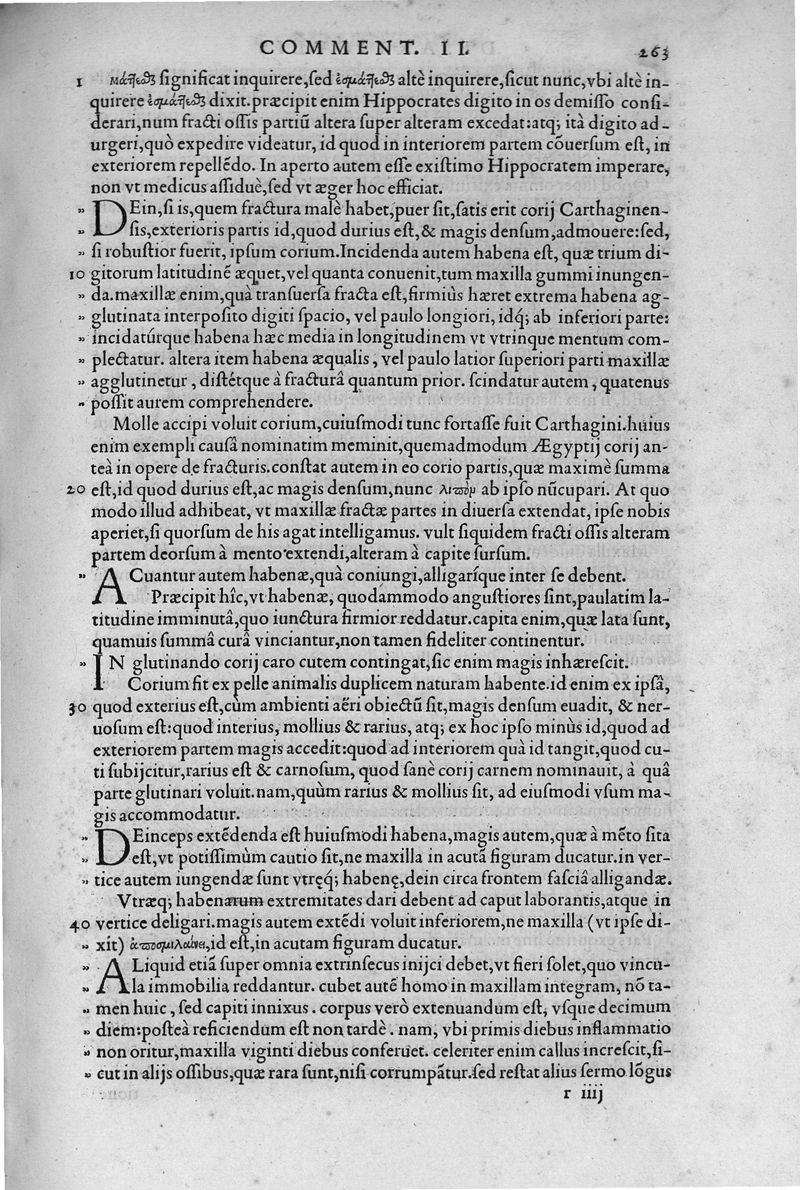 COMMENT. II. 263
1 ſignificat inquirere,ſed altè inquirere,ſicut nunc,vbi altè in-
quirere dixit.præcipit enim Hippocrates digito in os demiſſo conſi-
derari,num fracti oſsis partiũ altera ſuper alteram excedat:atq; ità digito ad-
urgeri,quò expedire videatur, id quod in interiorem partem cõuerſum eſt, in
exteriorem repellẽdo. In aperto autem eſſe exiſtimo Hippocratem imperare,
non vt medicus aſsiduè,ſed vt æger hoc efficiat.
„ DEin,ſi is,quem fractura malè habet,puer ſit,ſatis erit corij Carthaginen-
„ ſis,exterioris partis id,quod durius eſt,& magis denſum,admouere:ſed,
„ ſi robuſtior fuerit, ipſum corium.Incidenda autem habena eſt, quæ trium di-
10 gitorum latitudinẽ æquet,vel quanta conuenit,tum maxilla gummi inungen-
„ da.maxillæ enim,quà tranſuerſa fracta eſt,firmiùs hæret extrema habena ag-
„ glutinata interpoſito digiti ſpacio, vel paulo longiori, idq́; ab inferiori parte:
„ incidatúrque habena hæc media in longitudinem vt vtrinque mentum com-
„ plectatur. altera item habena æqualis, vel paulo latior ſuperiori parti maxillæ
„ agglutinetur, diſtétque à fracturâ quantum prior. ſcindatur autem, quatenus
„ poſsit aurem comprehendere.
Molle accipi voluit corium,cuiuſmodi tunc fortaſſe fuit Carthagini.huius
enim exempli cauſâ nominatim meminit,quemadmodum Ægyptij corij an-
teà in opere de fracturis.conſtat autem in eo corio partis,quæ maximè ſumma
20 eſt,id quod durius eſt,ac magis denſum,nunc ab ipſo nũcupari. At quo
modo illud adhibeat, vt maxillæ fractæ partes in diuerſa extendat, ipſe nobis
aperiet,ſi quorſum de his agat intelligamus. vult ſiquidem fracti oſsis alteram
partem deorſum à mento extendi,alteram à capite ſurſum.
„ ACuantur autem habenæ,quà coniungi,alligaríque inter ſe debent.
Præcipit hîc,vt habenæ, quodammodo anguſtiores ſint,paulatim la-
titudine imminutâ,quo iunctura firmior reddatur.capita enim,quæ lata ſunt,
quamuis ſummâ curâ vinciantur,non tamen fideliter continentur.
„ IN glutinando corij caro cutem contingat,ſic enim magis inhæreſcit.
Corium fit ex pelle animalis duplicem naturam habente.id enim ex ipſâ,
30 quod exterius eſt,cùm ambienti aëri obiectũ ſit,magis denſum euadit, & ner-
uoſum eſt:quod interius, mollius & rarius, atq; ex hoc ipſo minùs id,quod ad
exteriorem partem magis accedit:quod ad interiorem quà id tangit,quod cu-
ti ſubijcitur,rarius eſt & carnoſum, quod ſanè corij carnem nominauit, à quâ
parte glutinari voluit.nam,quùm rarius & mollius ſit, ad eiuſmodi vſum ma-
gis accommodatur.
„ DEinceps extẽdenda eſt huiuſmodi habena,magis autem,quæ à mẽto ſita
„ eſt,vt potiſsimùm cautio ſit,ne maxilla in acutã figuram ducatur.in ver-
„ tice autem iungendæ ſunt vtręq́; habenę,dein circa frontem faſciâ alligandæ.
Vtræq; habenarum extremitates dari debent ad caput laborantis,atque in
40 vertice deligari.magis autem extẽdi voluit inferiorem,ne maxilla (vt ipſe di-
„ xit) ,id eſt,in acutam figuram ducatur.
„ ALiquid etiã ſuper omnia extrinſecus inijci debet,vt fieri ſolet,quo vincu-
„ la immobilia reddantur. cubet autẽ homo in maxillam integram, nõ ta-
„ men huic, ſed capiti innixus. corpus verò extenuandum eſt, vſque decimum
„ diem:poſteà reficiendum eſt non tardè. nam, vbi primis diebus inflammatio
„ non oritur,maxilla viginti diebus conferuet. celeriter enim callus increſcit,ſi-
„ cut in alijs oſsibus,quæ rara ſunt,niſi corrumpãtur.ſed reſtat alius ſermo lõgus
r iiij